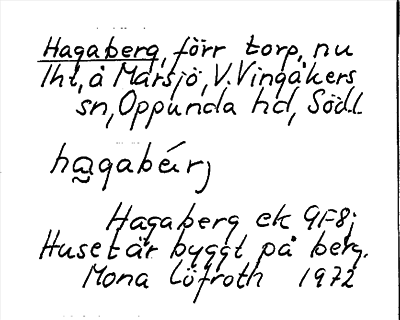 Hagaberg, förr torp, nu
lht, å Marsjö, V. Vingåkers
sn, Oppunda hd, Södl.
ha̰gabérj
Hagaberg ek 9F8j
Huset är byggt på berg.
Mona Löfroth 1972